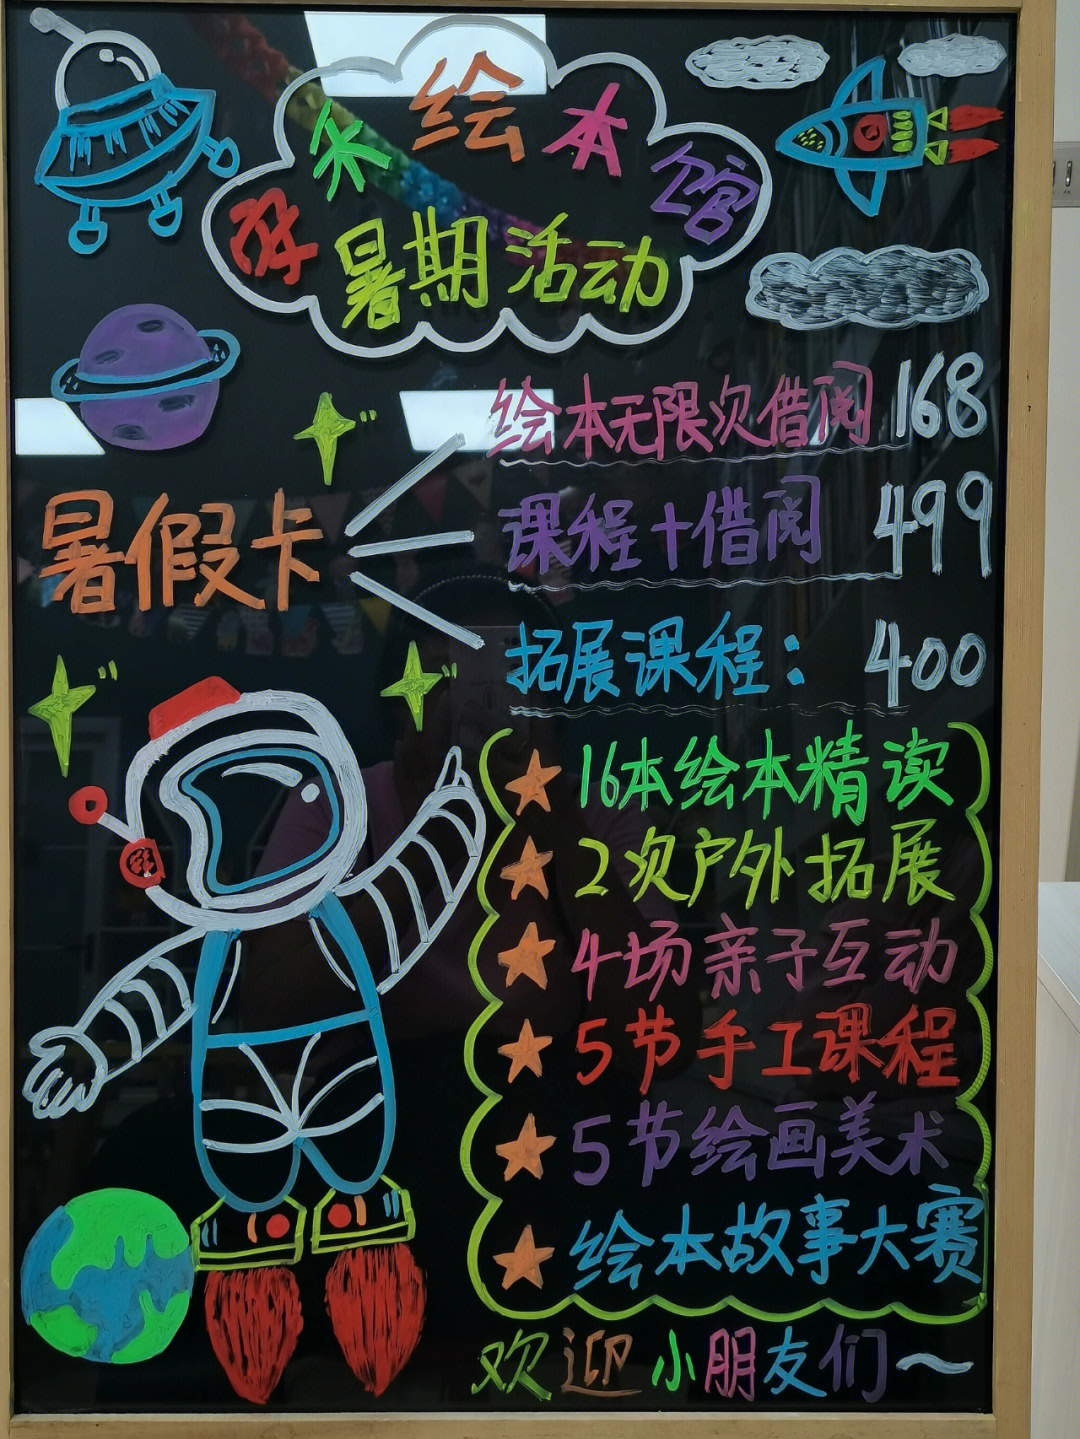 禾绘本馆
暑期活动
暑假卡
绘本无限次借阅 168
课程+借阅 499
拓展课程: 400
16本绘本精读
2次户外拓展
4场亲子互动
5节手工课程
5节绘画美术
绘本故事大赛
欢迎小朋友们~